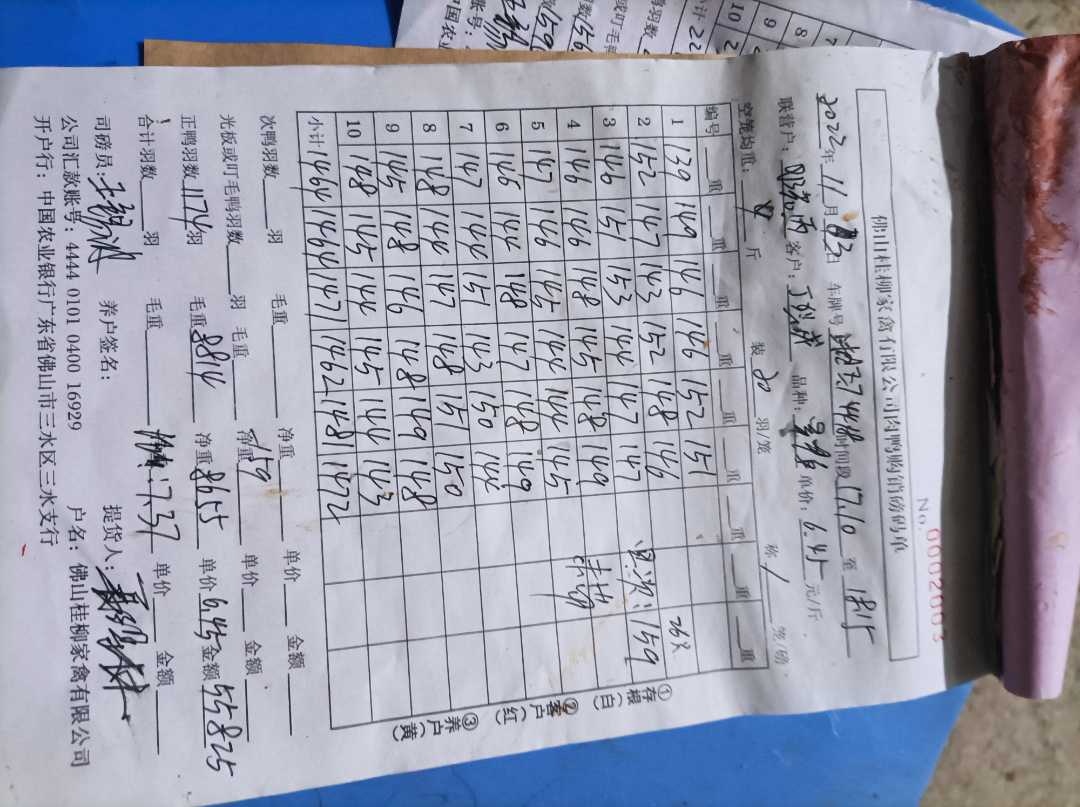 No. 0002003
佛山桂柳家禽有限公司肉鸭购销磅码单
2022年11月03日 车牌号 7448 时间段 17.10 至 18.15
联营户: 客户: 品种: 单价: 6.45 元/斤
空笼均重: 斤 装 20 羽/笼 称 1 笼/磅
编号 重 重 重 重 重 重 重 重 重
1 139 149 146 146 152 151
2 152 147 143 152 148 146 159
3 146 151 153 144 147 147
4 146 146 148 145 148 149
5 147 146 145 144 144 145
6 146 144 148 147 148 149
7 147 144 151 143 150 144
8 148 144 147 148 151 150
9 145 148 146 148 149 148
10 148 145 144 145 144 143
小计 1464 1464 1471 1462 1481 1472
①存根(白) ②客户(红) ③养户(黄)
次鸭羽数 羽 毛重 净重 单价 金额
光板或叮毛鸭羽数 羽 毛重 净重 159 单价 金额
正鸭羽数 1174 羽 毛重 8814 净重 8655 单价 6.45 金额 55825
合计羽数 羽 毛重 7.37 单价 金额
司磅员: 养户签名: 提货人:
公司汇款账号: 4444 0101 0400 16929 户名: 佛山桂柳家禽有限公司
开户行: 中国农业银行广东省佛山市三水区三水支行